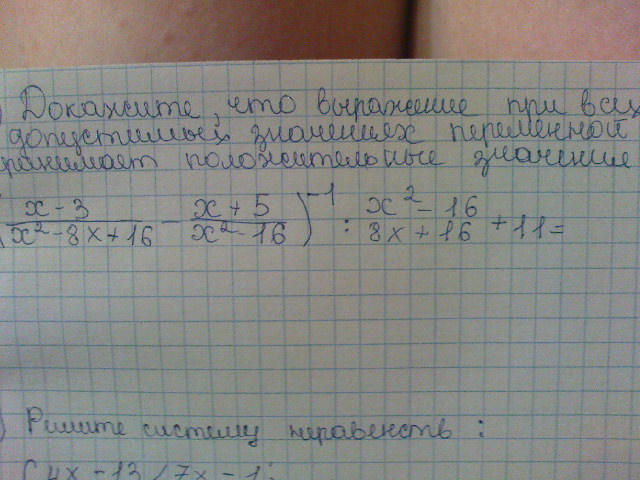 ) Докажите, что выражение при всех
допустимых значениях переменной
ринимает положительные значение
(x-3/x²-8x+16 - x+5/x²-16)⁻¹ : x²-16/8x+16 + 11=
) Решите систему неравенств :
{ 4x-13 / 7x-1;